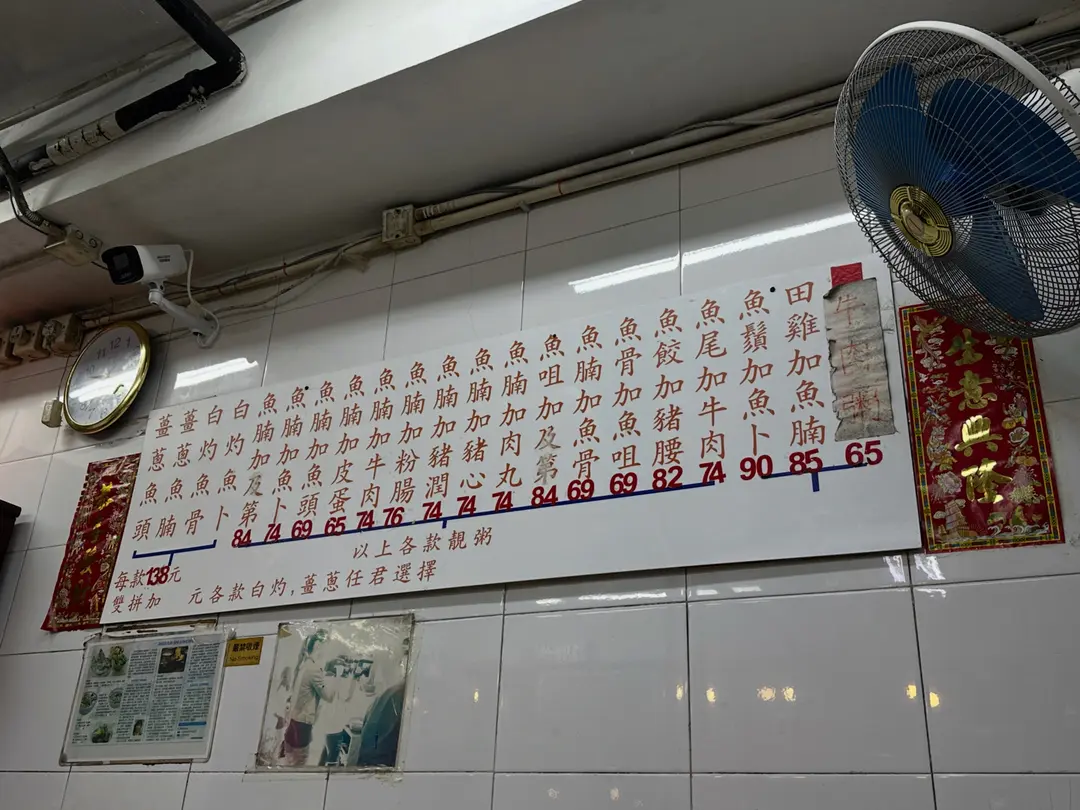 牛肉粥 65
田雞加魚腩 85
魚鬚加魚卜 90
魚尾加牛肉 74
魚餃加豬腰 82
魚骨加魚咀 69
魚腩加魚骨 69
魚咀加及第 84
魚腩加肉丸 74
魚腩加豬心 74
魚腩加豬潤 74
魚腩加粉腸 76
魚腩加牛肉 74
魚腩加皮蛋 65
魚腩加魚頭 69
魚腩加魚卜 74
魚腩加及第 84
白灼魚卜
白灼魚骨
薑蔥魚腩
薑蔥魚頭
以上各款靚粥
每款138元
雙拼加 元各款白灼,薑蔥任君選擇
生意興隆
No Smoking